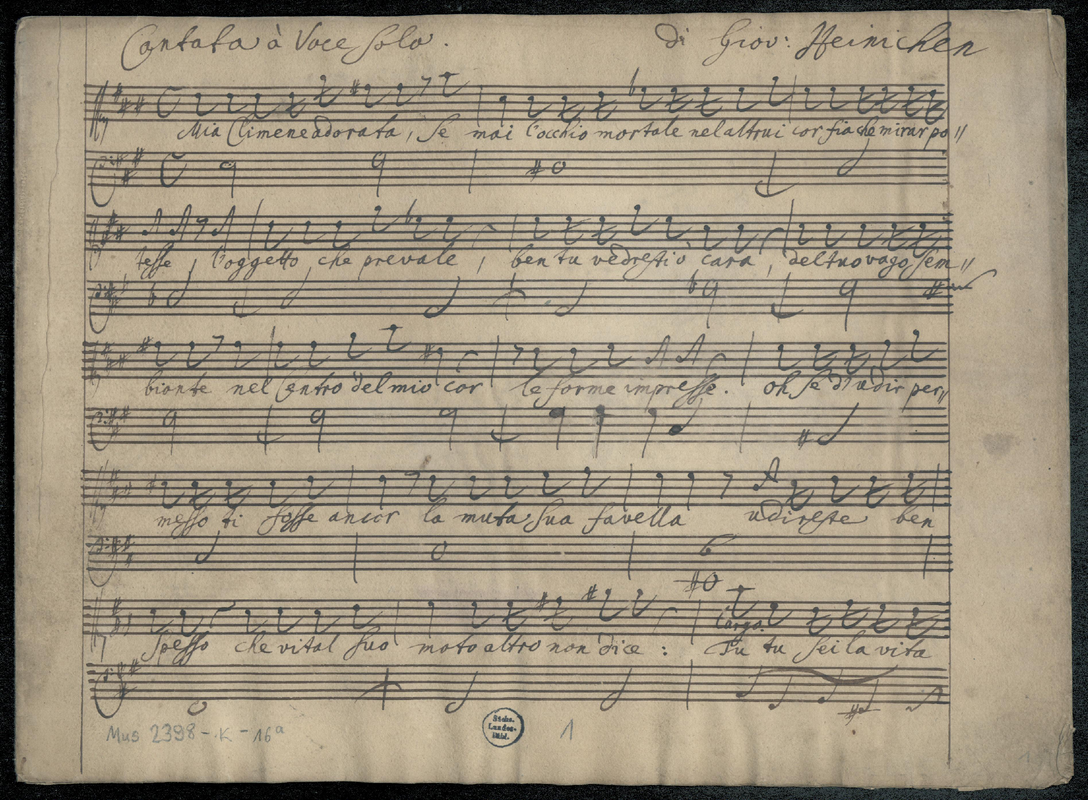 Cantata à Voce Solo. di Giov: Heinichen
Mia Climene adorata, Se mai l'occhio mortale nel altrui cor fia che mirar po//
tesse, l'oggetto che prevale, ben tu vedresti ò cara, del tuo vago sem//
biante nel Centro del mio cor le forme impresse. oh se d'udir per//
messo ti fosse ancor la muta sua favella udireste ben
spesso che vital suo moto altro non dice: Tu tu sei la vita
largo.
Mus 2398-K-16a
Sächs.
Landes-
Bibl.
1